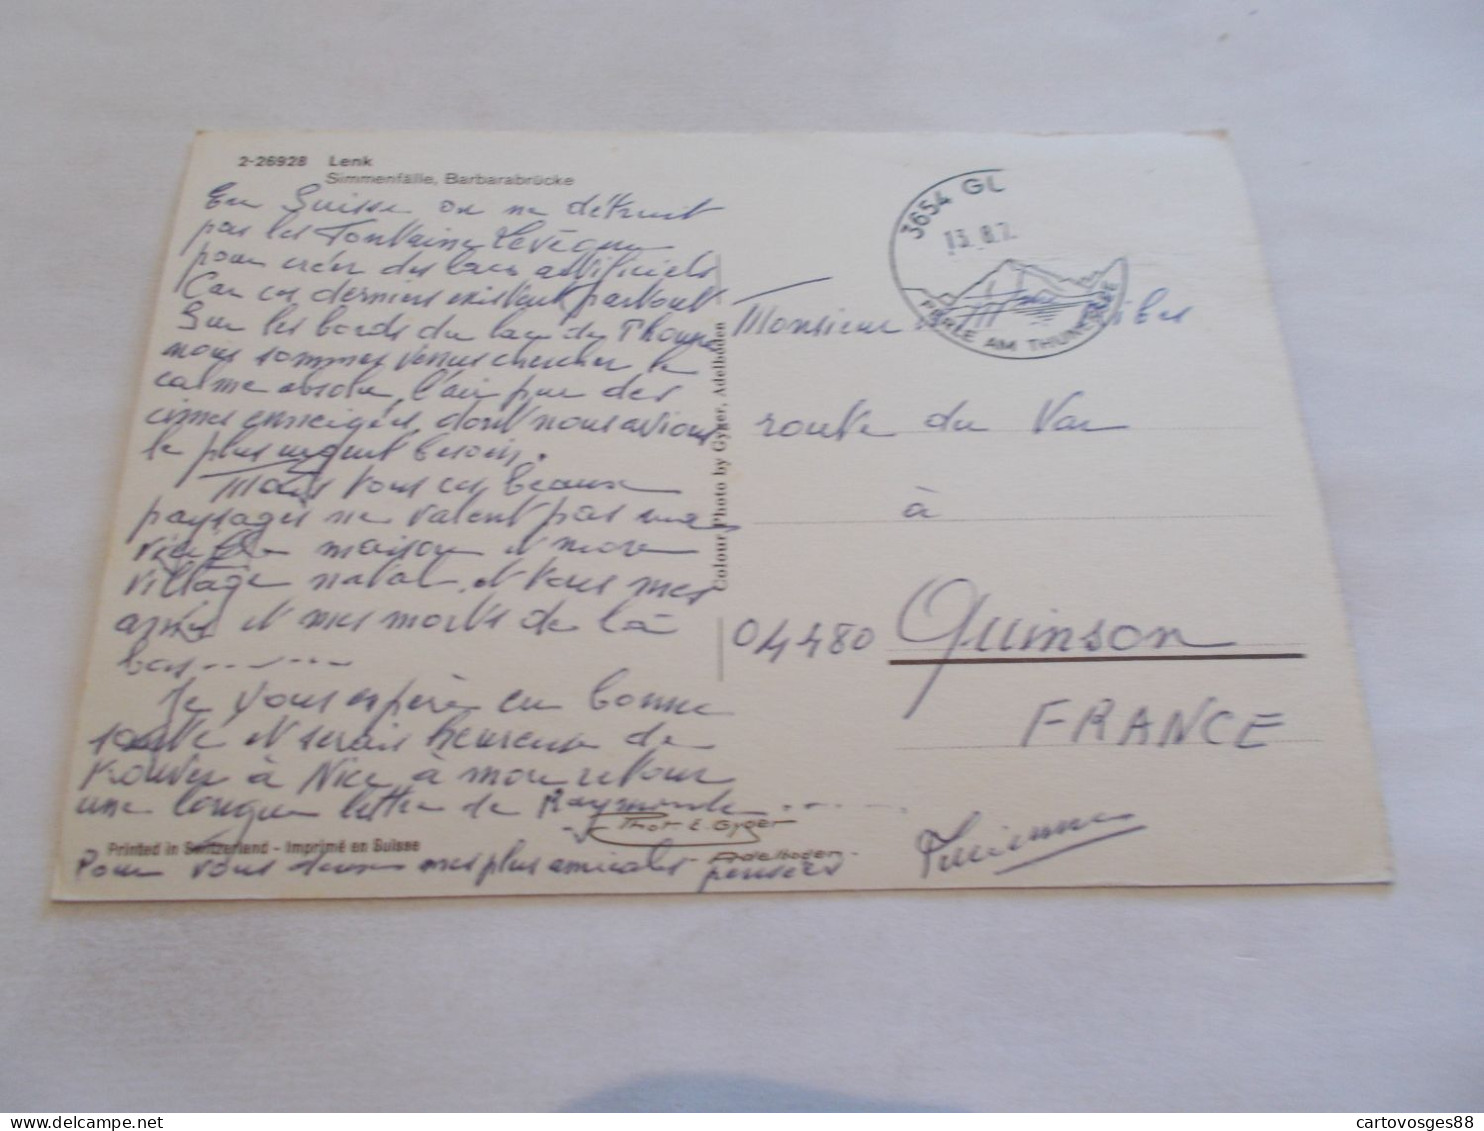 2-26928 Lenk
Simmenfälle, Barbarabrücke
En Suisse on ne détruit
pas les Fontaine Levêque
pour créer des lacs artificiels
Car ces derniers existent partout
Sur les bords du lac de Thoune
nous sommes venus chercher le
calme absolu, l'air pur des
cimes enneigées, dont nous avions
le plus urgent besoin.
Mais tous ces beaux
paysages ne valent pas ma
vieille maison et mon
village natal, et tous mes
amis et mes morts de là
bas
Je vous espère en bonne
santé et serais heureuse de
trouver à Nice à mon retour
une longue lettre de Raymonde
Pour vous tous mes plus amicales pensées
Printed in Switzerland - Imprimé en Suisse
Phot E. Gyger
Adelboden
Colour Photo by Gyger, Adelboden
3654 GL
13.8.7
PERLE AM THUNERSEE
Monsieur
route du Var
à
04480 Quinson
FRANCE
cartovosges88